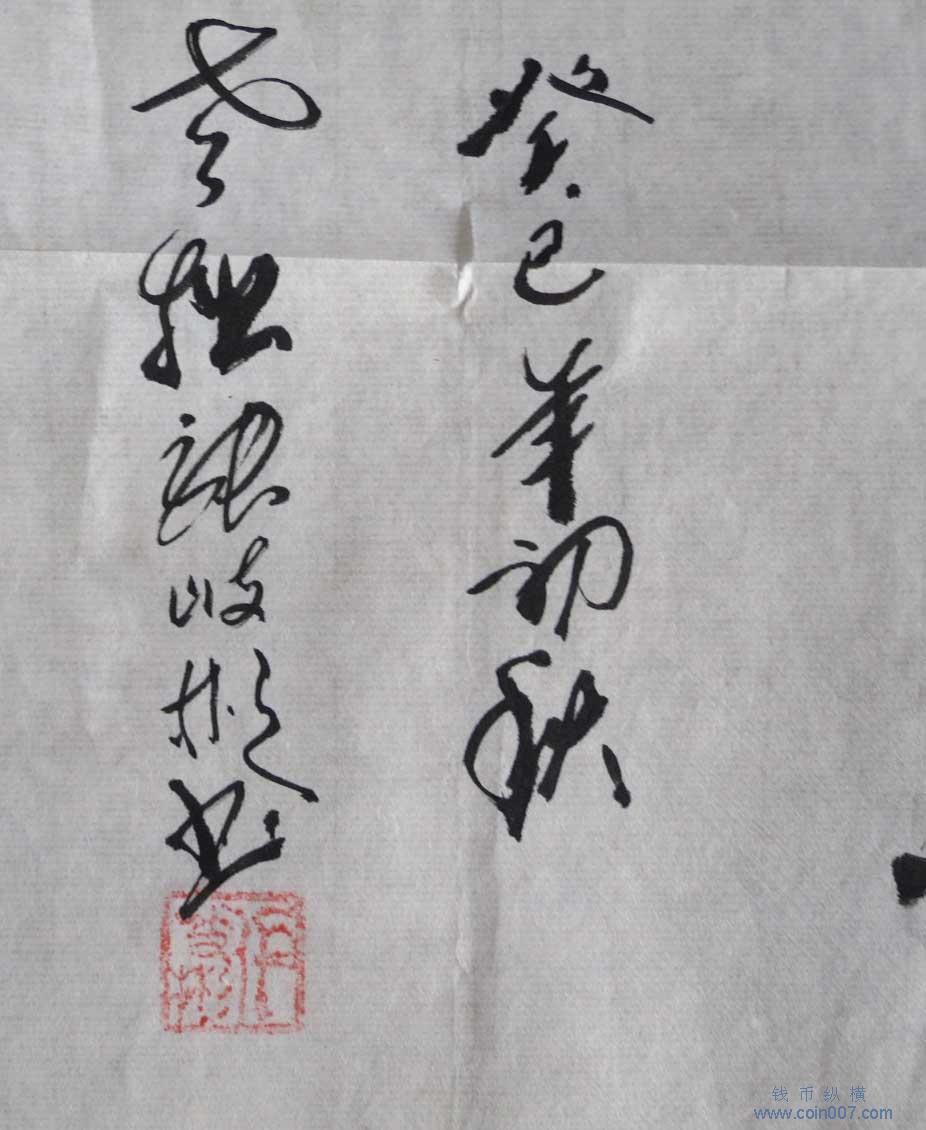 癸巳年初秋
老拙 岐彬书
钱币纵横
www.coin007.com